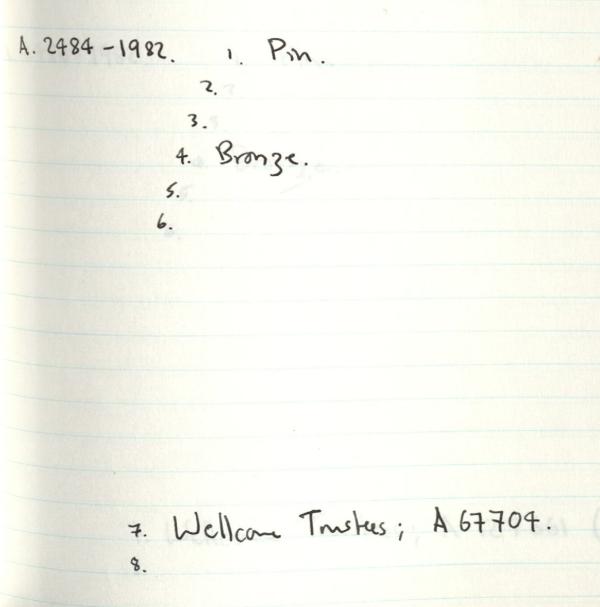 A. 2484-1982. 1. Pin.
2.
3.
4. Bronze.
5.
6.
7. Wellcome Trustees; A 67704.
8.